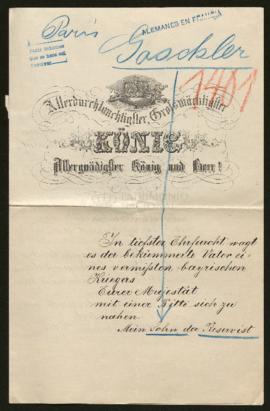 Paris
ALEMANES EN FRANCIA
Goeckler
1401
Allerdurchlauchtigster, Großmächtigster
KÖNIG
Allergnädigster König und Herr!
In tiefster Ehrfurcht wagt
es der bekümmerte Vater ei-
nes vermißten bayrischen
Kriegers
Eurer Majestät
mit einer Bitte sich zu
nahen.
Mein Sohn der Reservist